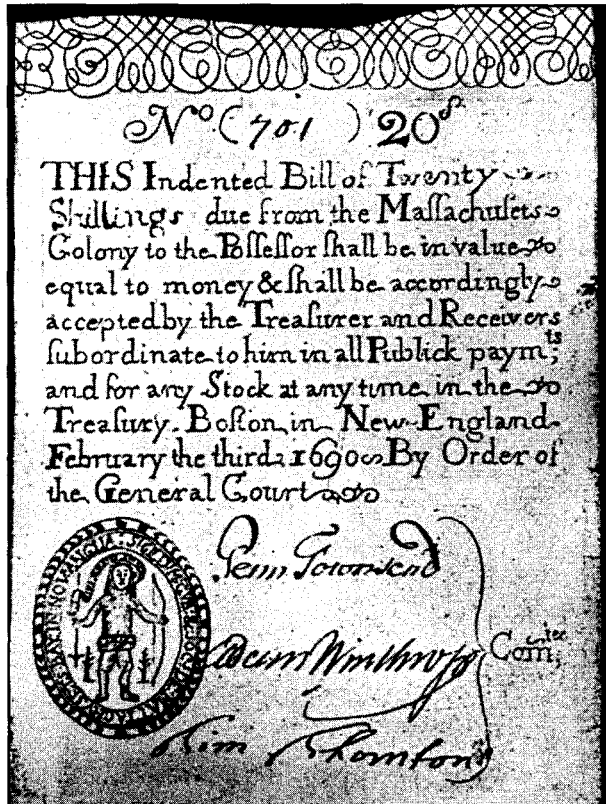 No (701) 20s
THIS Indented Bill of Twenty
Shillings due from the Maſſachuſets
Colony to the Poſſeſſor ſhall be in value
equal to money & ſhall be accordingly
accepted by the Treaſurer and Receivers
ſubordinate to him in all Publick paymts;
and for any Stock at any time in the
Treaſury. Boſton in New-England
February the third 1690 By Order of
the General Court
Penn Townsend
Adam Winthrop
Tim Thornton
Comtee